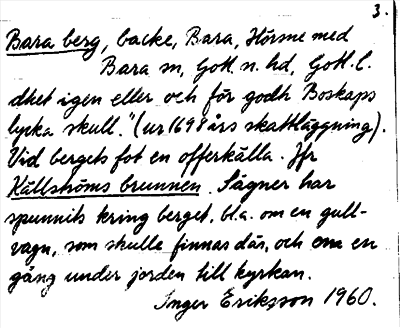 3.
Bara berg, backe, Bara, Hörsne med
Bara sn, Gotl. n. hd, Gotl. l.
dhet igen eller och för godh Boskaps
lycka skull." (ur 1698 års skattläggning).
Vid bergets fot en offerkälla. Jfr
Källströms brunnen. Sägner har
spunnits kring berget, bl.a. om en gull-
vagn, som skulle finnas där, och om en
gång under jorden till kyrkan.
Inger Eriksson 1960.